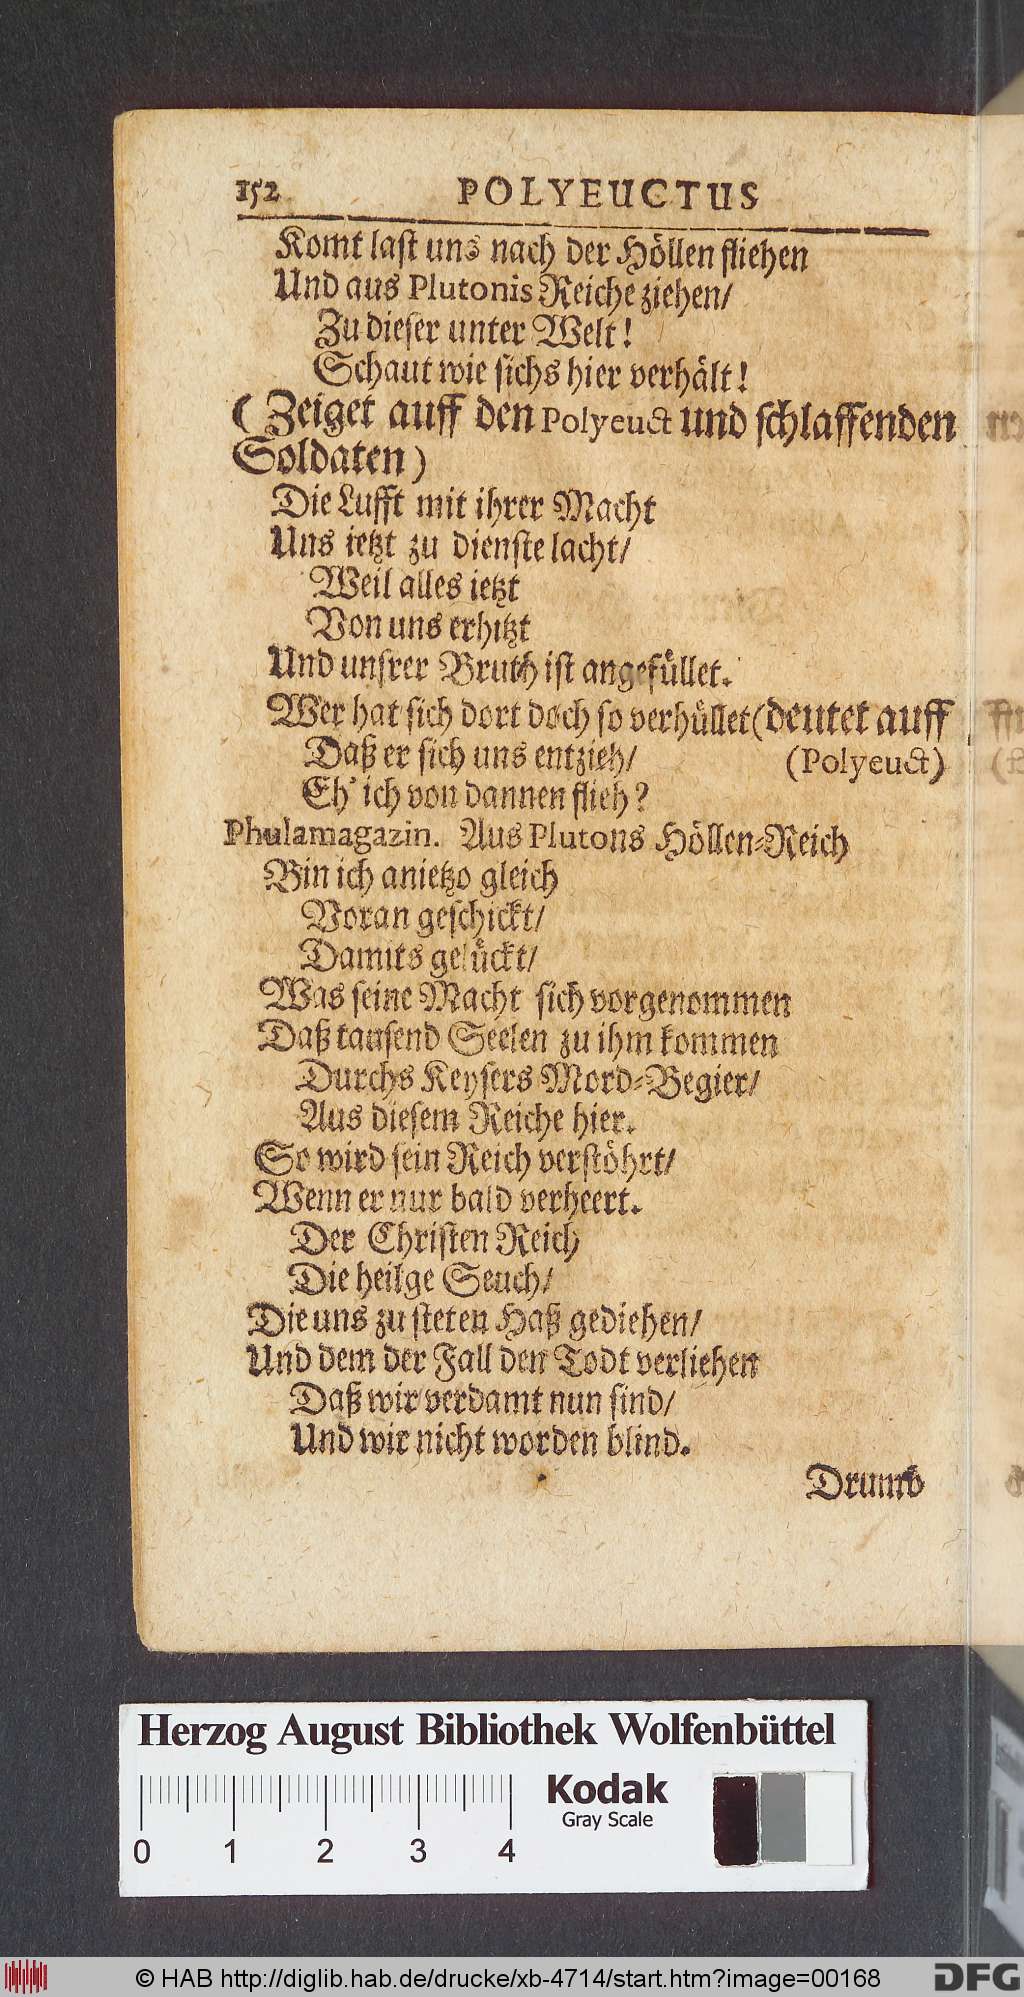 152 POLYEUCTUS
Komt last uns nach der Höllen fliehen
Und aus Plutonis Reiche ziehen/
Zu dieser unter Welt!
Schaut wie sichs hier verhält!
(Zeiget auff den Polyeuct und schlaffenden
Soldaten)
Die Lufft mit ihrer Macht
Uns ietzt zu dienste lacht/
Weil alles ietzt
Von uns erhitzt
Und unsrer Bruth ist angefüllet.
Wer hat sich dort doch so verhüllet (deutet auff
Daß er sich uns entzieh/ (Polyeuct)
Eh' ich von dannen flieh?
Phulamagazin. Aus Plutons Höllen-Reich
Bin ich anietzo gleich
Voran geschickt/
Damits gelückt/
Was seine Macht sich vorgenommen
Daß tausend Seelen zu ihm kommen
Durchs Keysers Mord-Begier/
Aus diesem Reiche hier.
So wird sein Reich verstöhrt/
Wenn er nur bald verheert.
Der Christen Reich
Die heilge Seuch/
Die uns zu steten Haß gediehen/
Und dem der Fall den Todt verliehen
Daß wir verdamt nun sind/
Und wir nicht worden blind.
Drumb
Herzog August Bibliothek Wolfenbüttel
Kodak
Gray Scale
0 1 2 3 4
© HAB http://diglib.hab.de/drucke/xb-4714/start.htm?image=00168
DFG